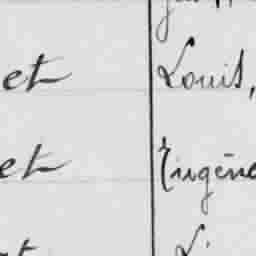 et Louis,
et Eugène